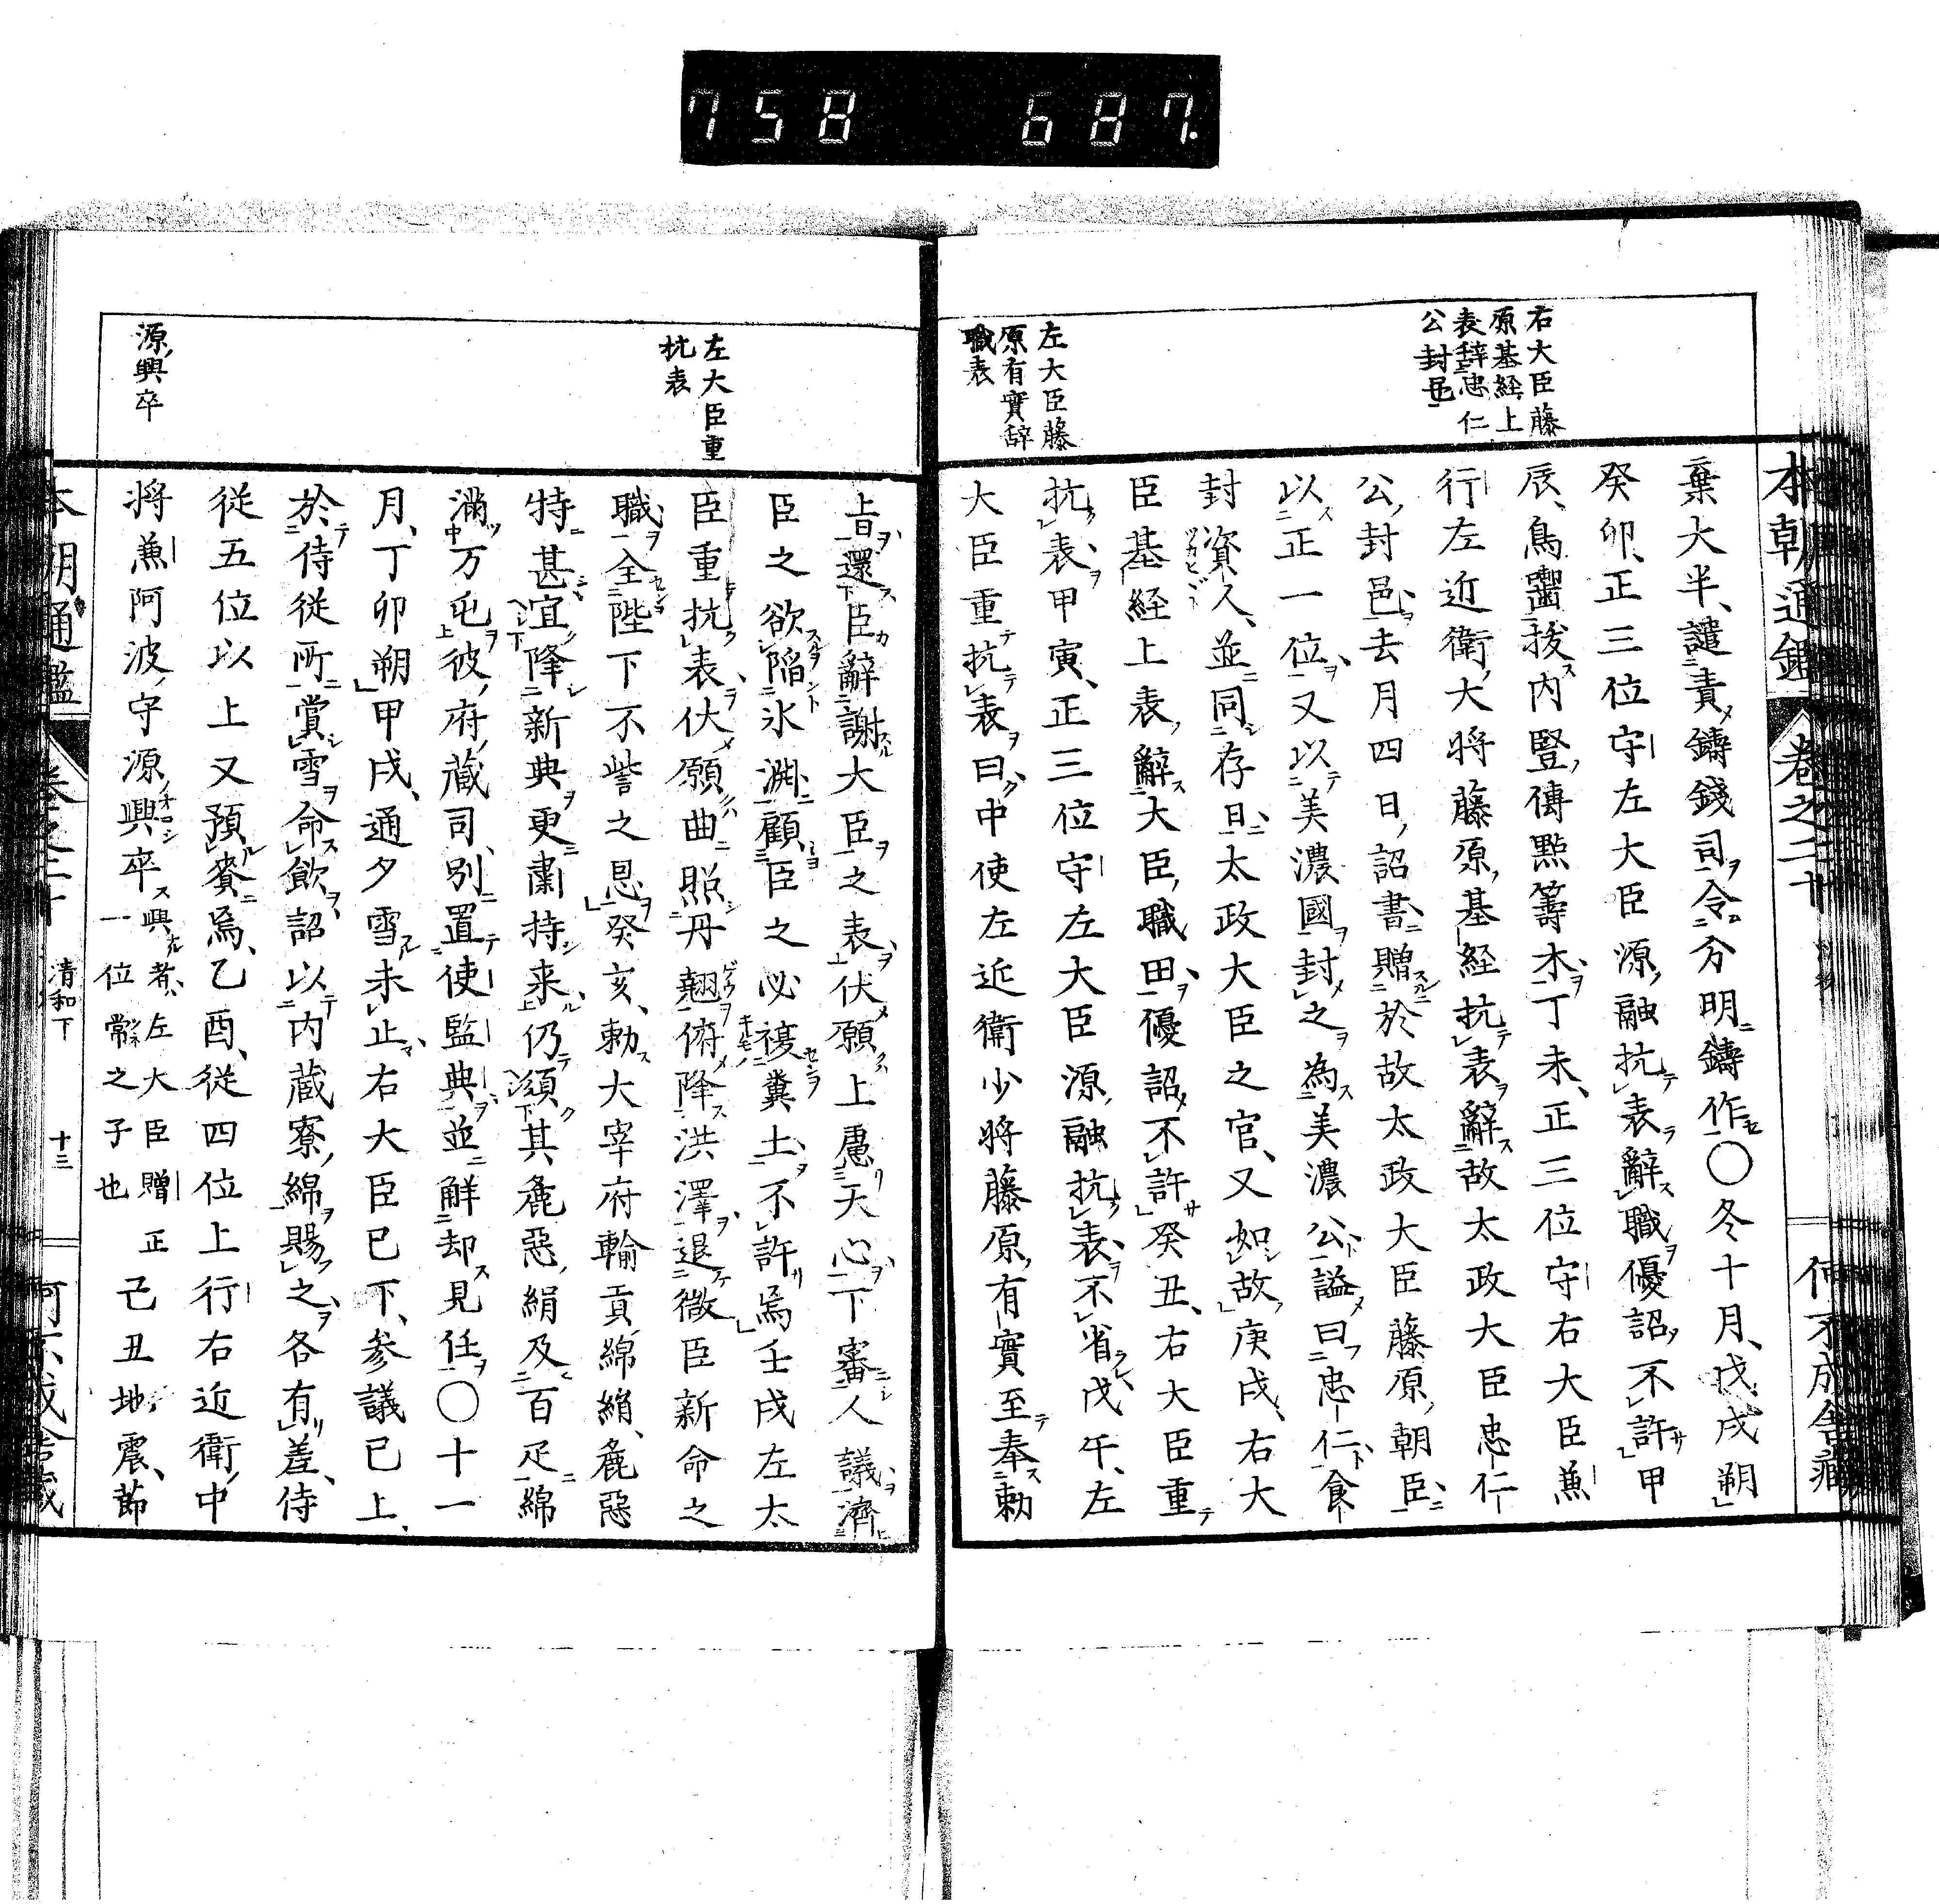 758 687.
本朝通鑑 卷之二十 何不成舎藏
右大臣藤
原基経上
表辞忠仁
公封邑
左大臣藤
原有實辞
職表
棄大半、譴責鑄錢司、令分明鑄作○冬十月、戊戌朔
癸卯、正三位守左大臣源融抗表辭職優詔不許甲
辰、鳥齧抜内竪傳點籌木、丁未、正三位守右大臣兼
行左近衛大将藤原基経抗表辭故太政大臣忠仁
公封邑去月四日詔書贈於故太政大臣藤原朝臣
以正一位又以美濃國封之為美濃公謚曰忠仁食
封資人並同存日太政大臣之官、又如故庚戌、右大
臣基経上表辭大臣職田優詔不許癸丑、右大臣重
抗表甲寅、正三位守左大臣源融抗表不省戊午、左
大臣重抗表曰中使左近衛少将藤原有實至奉勅
左大臣重
抗表
源興卒
旨還臣辭謝大臣之表伏願上慮天心下審人議濟
臣之欲陷氷淵顧臣之必襪糞土不許焉壬戌左太
臣重抗表伏願曲照丹翹俯降洪澤退微臣新命之
職全陛下不訾之恩癸亥、勅大宰府輸貢綿絹、麁惡
特甚宜降新典更粛持来仍湏其麁惡絹及百疋綿
滿万屯彼府藏司別置使監典並解却見任○十一
月、丁卯朔甲戌、通夕雪未止右大臣已下、参議已上、
於侍従所賞雪命飲詔以内蔵寮綿賜之各有差、侍
従五位以上又預賚焉、乙酉、従四位上行右近衛中
将兼阿波守源興卒興者左大臣贈正
一位常之子也己丑地震、節
本朝通鑑 卷之二十 清和下 十三 何不成舎藏